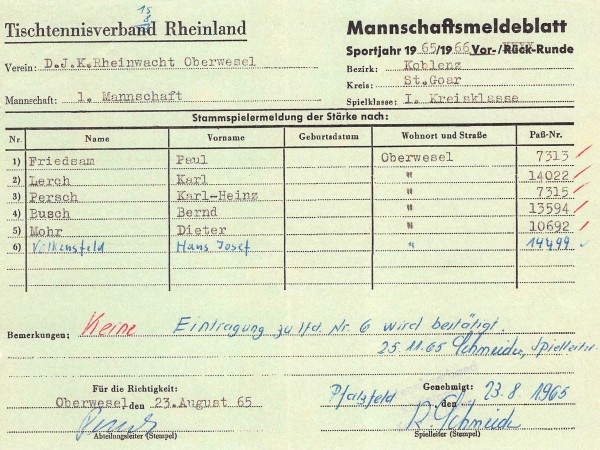 15
8
Tischtennisverband Rheinland
Mannschaftsmeldeblatt
Sportjahr 1965/1966 Vor-/Rück-Runde
Verein: D.J.K.Rheinwacht Oberwesel
Bezirk: Koblenz
Kreis: St.Goar
Mannschaft: 1. Mannschaft
Spielklasse: I. Kreisklasse
Stammspielermeldung der Stärke nach:
Nr. Name Vorname Geburtsdatum Wohnort und Straße Paß-Nr.
1) Friedsam Paul Oberwesel 7313
2) Lerch Karl " 14022
3) Persch Karl-Heinz " 7315
4) Busch Bernd " 13594
5) Mohr Dieter " 10692
6) Volkensfeld Hans Josef " 14499
Bemerkungen: Keine Eintragung zu lfd. Nr. 6 wird bestätigt.
25.11.65 Schneider, Spielleiter
Für die Richtigkeit:
Genehmigt:
Oberwesel den 23.August 65
Pfalzfeld den 23.8.1965
R. Schneider
Abteilungsleiter (Stempel)
Spielleiter (Stempel)